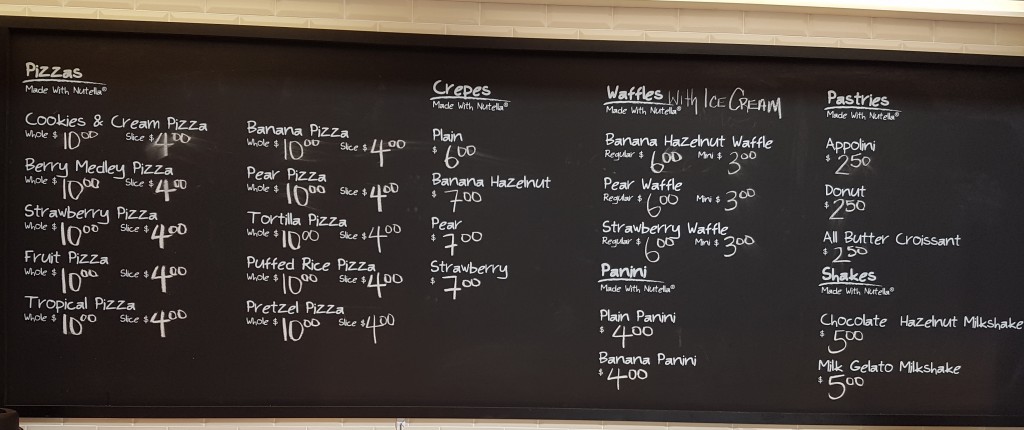 Pizzas
Made With Nutella®
Cookies & Cream Pizza
Whole $ 10.00 Slice $ 4.00
Berry Medley Pizza
Whole $ 10.00 Slice $ 4.00
Strawberry Pizza
Whole $ 10.00 Slice $ 4.00
Fruit Pizza
Whole $ 10.00 Slice $ 4.00
Tropical Pizza
Whole $ 10.00 Slice $ 4.00
Banana Pizza
Whole $ 10.00 Slice $ 4.00
Pear Pizza
Whole $ 10.00 Slice $ 4.00
Tortilla Pizza
Whole $ 10.00 Slice $ 4.00
Puffed Rice Pizza
Whole $ 10.00 Slice $ 4.00
Pretzel Pizza
Whole $ 10.00 Slice $ 4.00
Crepes
Made With Nutella®
Plain
$ 6.00
Banana Hazelnut
$ 7.00
Pear
$ 7.00
Strawberry
$ 7.00
Waffles With ICE CREAM
Made With Nutella®
Banana Hazelnut Waffle
Regular $ 6.00 Mini $ 3.00
Pear Waffle
Regular $ 6.00 Mini $ 3.00
Strawberry Waffle
Regular $ 6.00 Mini $ 3.00
Panini
Made With Nutella®
Plain Panini
$ 4.00
Banana Panini
$ 4.00
Pastries
Made With Nutella®
Appolini
$ 2.50
Donut
$ 2.50
All Butter Croissant
$ 2.50
Shakes
Made With Nutella®
Chocolate Hazelnut Milkshake
$ 5.00
Milk Gelato Milkshake
$ 5.00